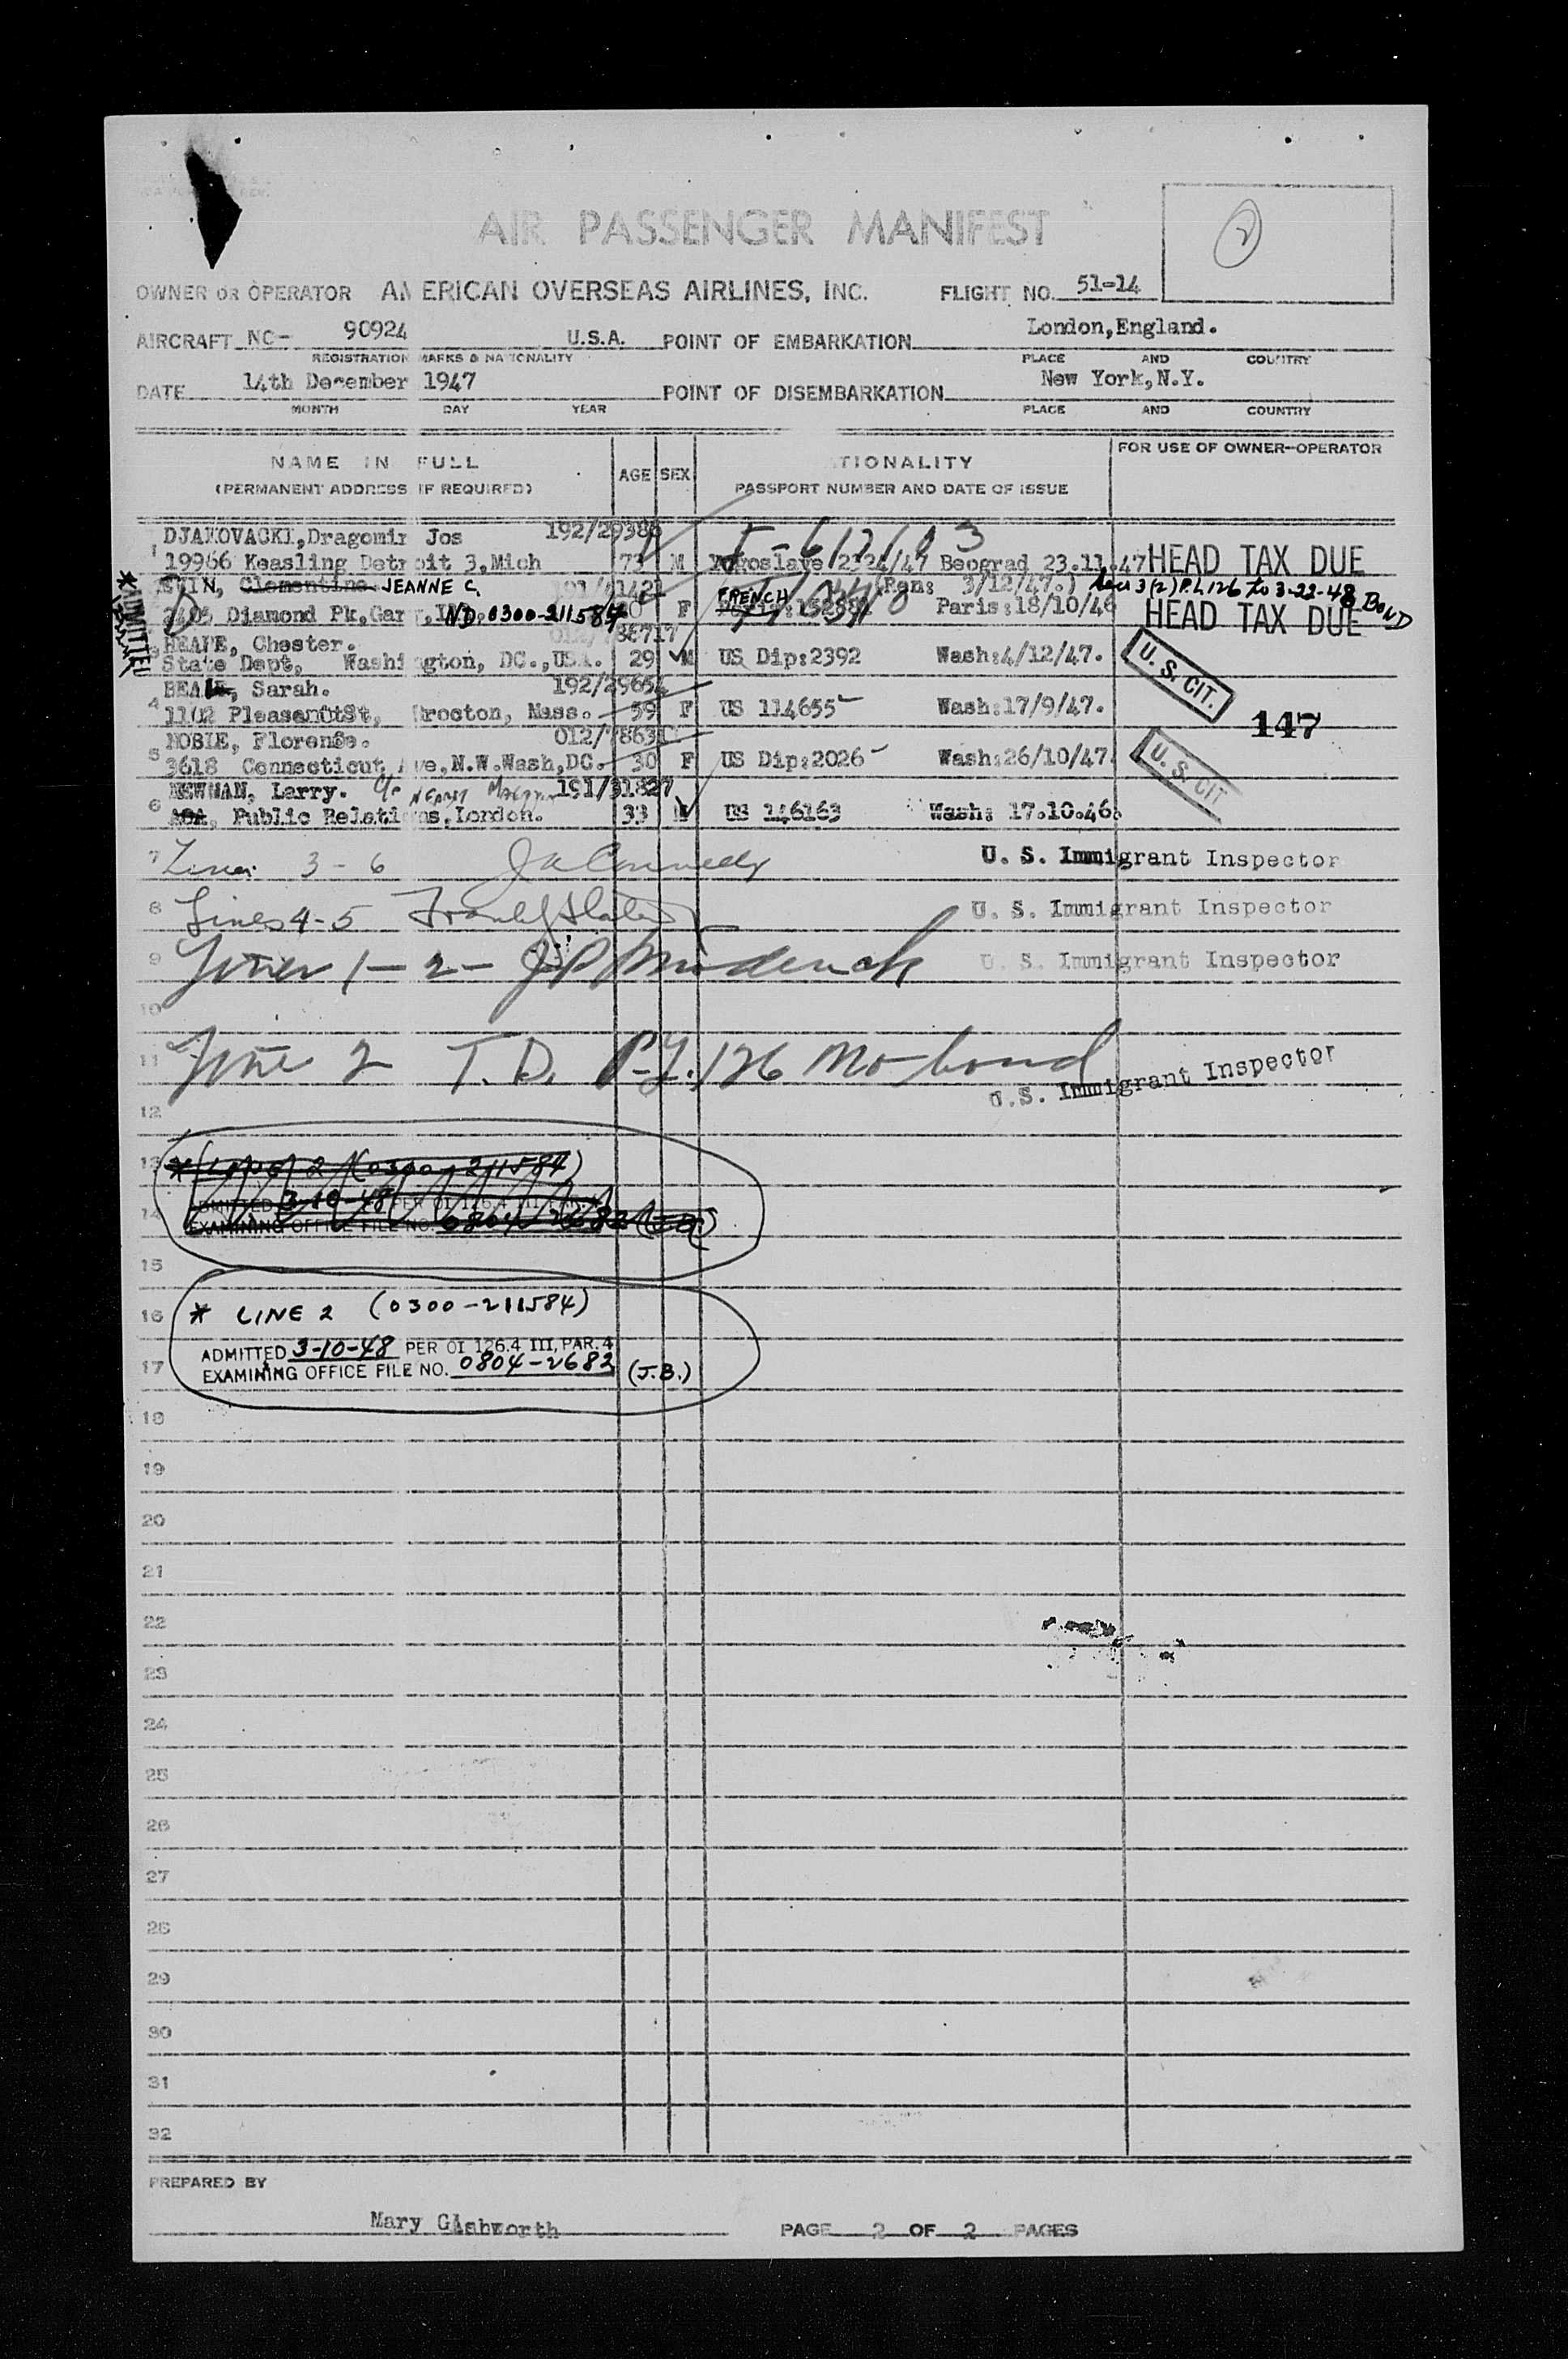 AIR PASSENGER MANIFEST
2
OWNER OR OPERATOR AMERICAN OVERSEAS AIRLINES, INC. FLIGHT NO. 51-14
AIRCRAFT NC- 90924 U.S.A. POINT OF EMBARKATION London,England.
REGISTRATION MARKS & NATIONALITY PLACE AND COUNTRY
DATE 14th December 1947 POINT OF DISEMBARKATION New York,N.Y.
MONTH DAY YEAR PLACE AND COUNTRY
NAME IN FULL AGE SEX TIONALITY FOR USE OF OWNER-OPERATOR
(PERMANENT ADDRESS IF REQUIRED) PASSPORT NUMBER AND DATE OF ISSUE
DJAKOVACKI,Dragomir Jos
1 19966 Keasling Detroit 3,Mich 73 M 2324/47 Beograd 23.11.47 HEAD TAX DUE
Clementine JEANNE C. (Ren: 3/12/47.) P.L.126 to 3-22-48 BOND
Diamond Pk,Gary,IND. 0300-211584 F FRENCH Paris:18/10/46 HEAD TAX DUE
*ADMITTED
HEAPE, Chester.
3 State Dept, Washington, DC.,USA. 29 M US Dip:2392 Wash:4/12/47. U. S. CIT.
Sarah. 192/29654
4 1102 Pleasant St, Brocton, Mass. 59 F US 114655 Wash:17/9/47. 147
NOBIE, Florence.
5 3618 Connecticut Ave,N.W.Wash,DC. 30 F US Dip:2026 Wash:26/10/47. U. S. CIT
NEWMAN, Larry. 191/31827
6 AOA, Public Relations,London. 33 M US 146163 Wash: 17.10.46.
7 Lines 3 - 6 U. S. Immigrant Inspector
8 Lines 4-5 U. S. Immigrant Inspector
9 Lines 1-2- U. S. Immigrant Inspector
10
11 Line 2 T.D. P.L.126 No bond U.S. Immigrant Inspector
12
13 * (LINE 2 (0300-211584)
ADMITTED 3-10-48 PER OI 126.4 III
14 EXAMINING OFFICE FILE NO. 0804-2682
15
16 * LINE 2 (0300-211584)
ADMITTED 3-10-48 PER OI 126.4 III, PAR. 4
17 EXAMINING OFFICE FILE NO. 0804-2682 (J.B.)
18
19
20
21
22
23
24
25
26
27
28
29
30
31
32
PREPARED BY
Mary PAGE 2 OF 2 PAGES